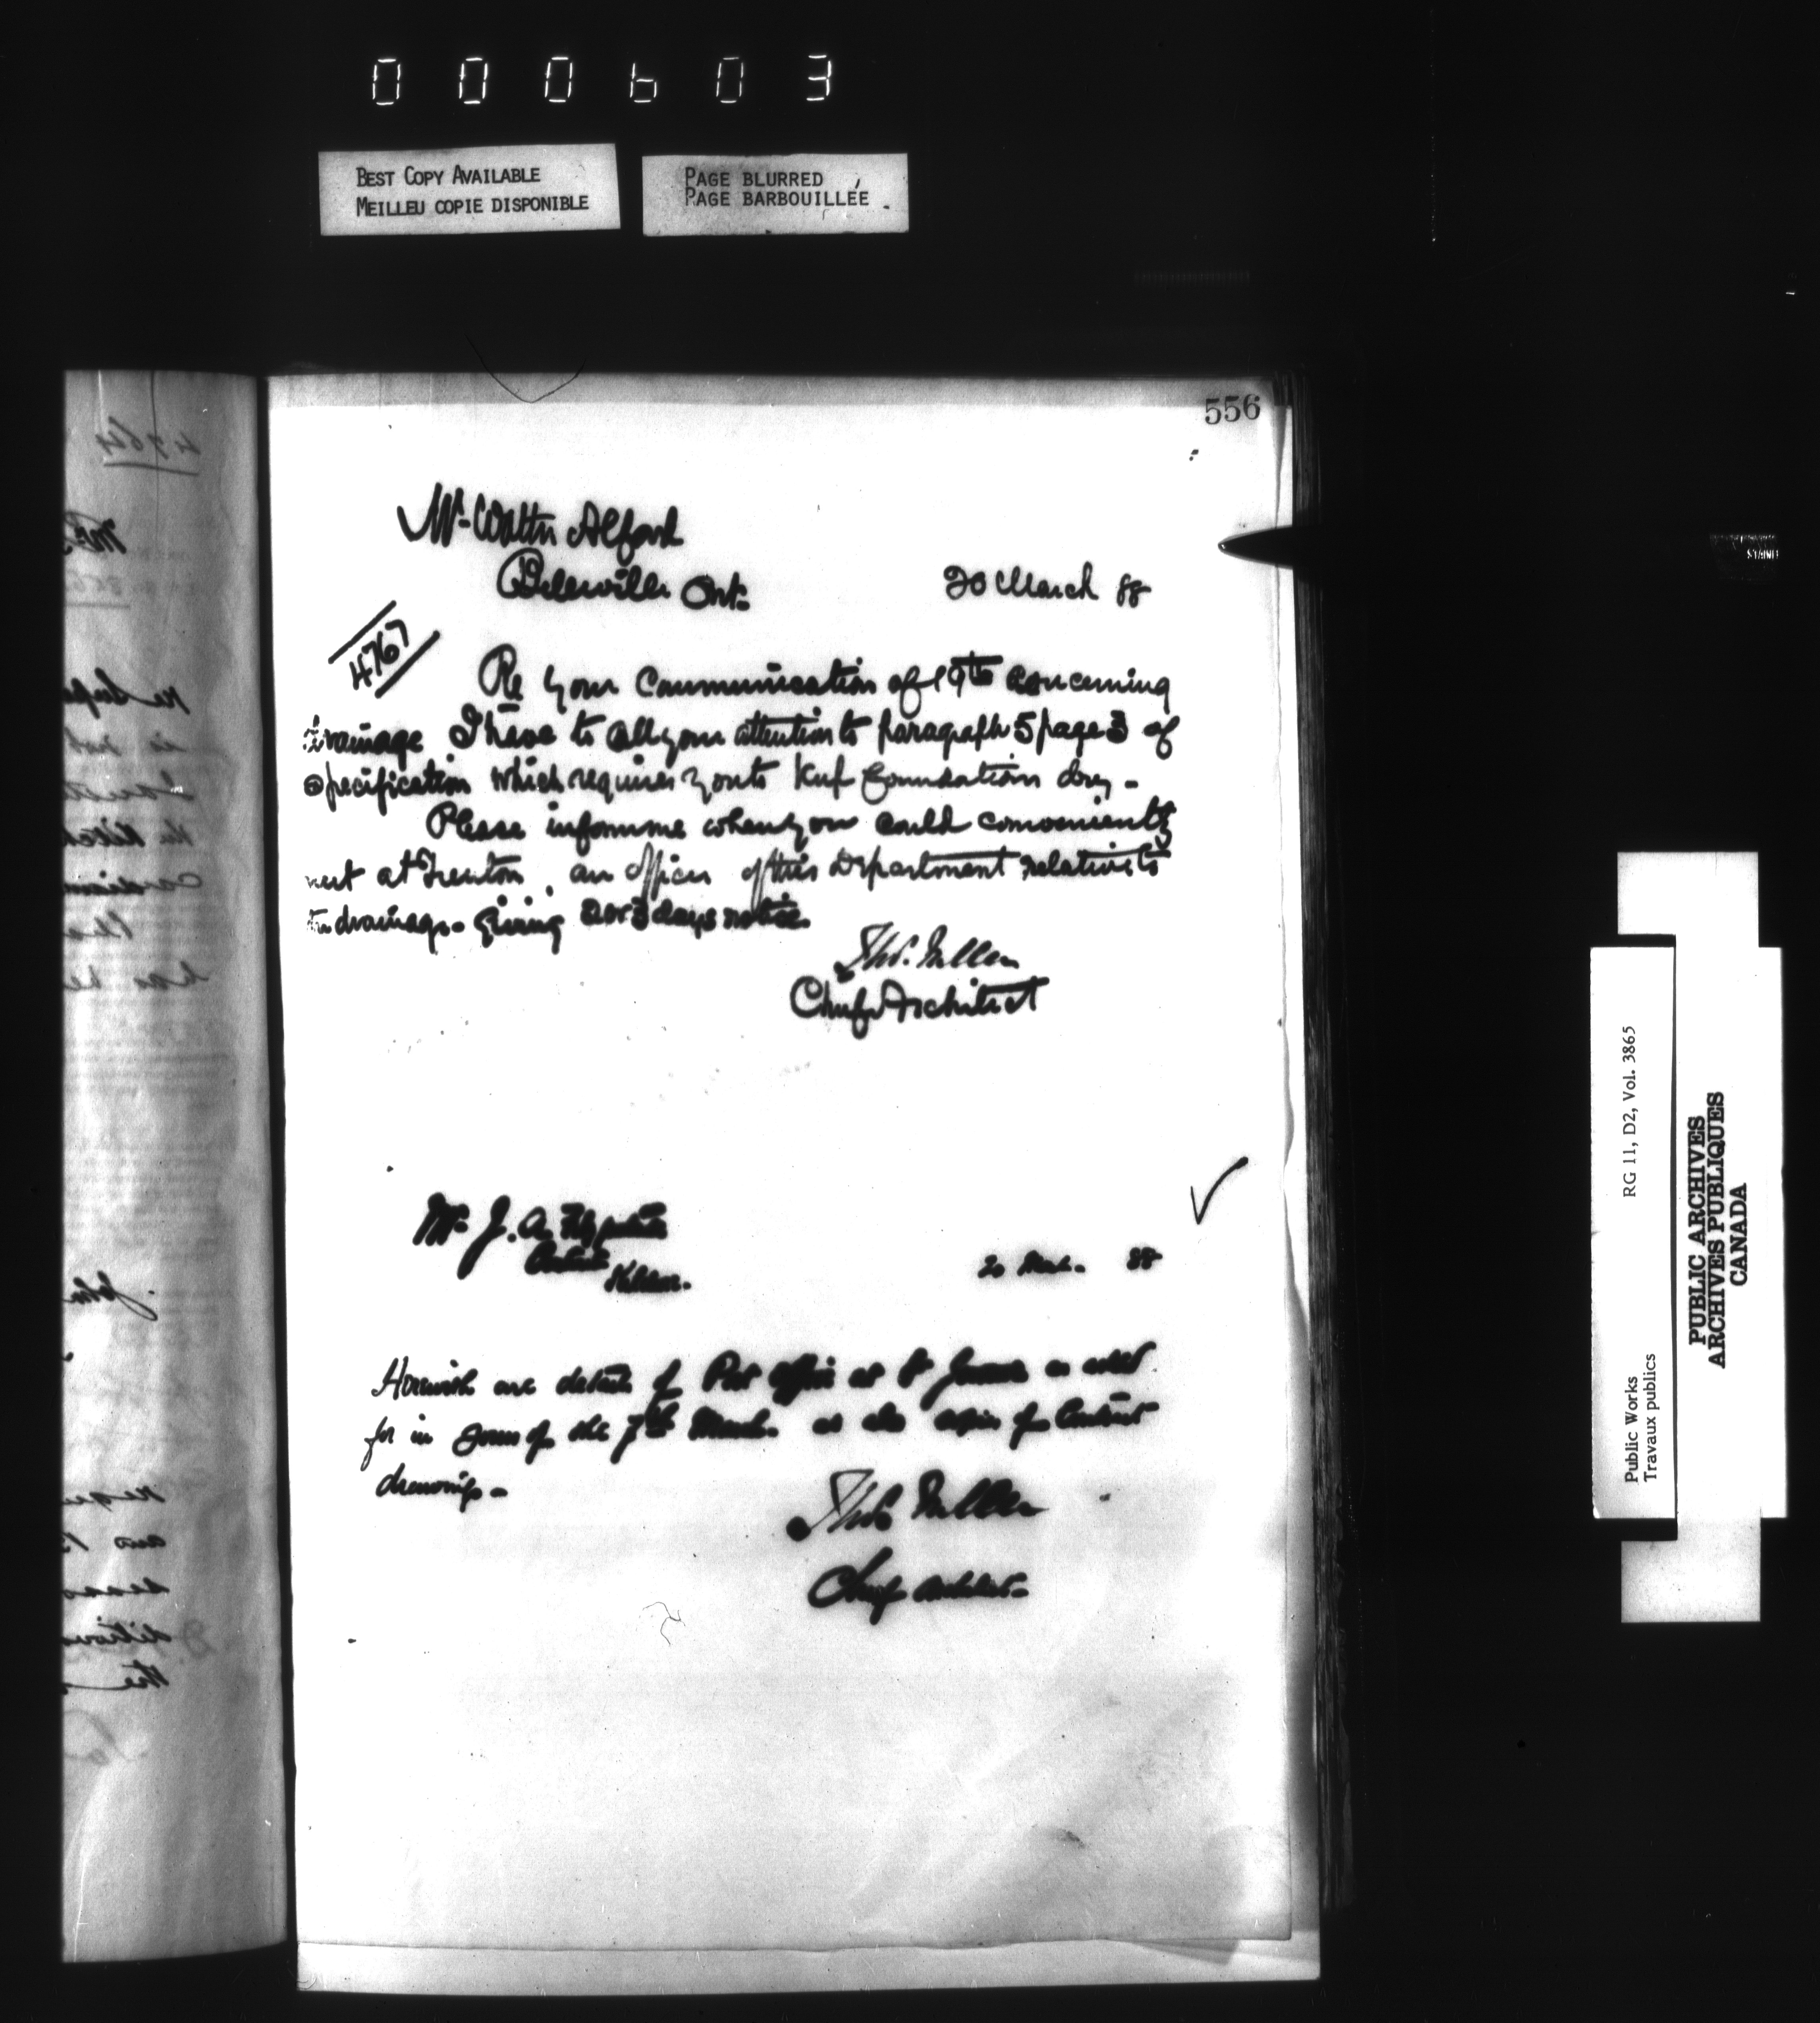 000603
BEST COPY AVAILABLE
MEILLEU COPIE DISPONIBLE
PAGE BLURRED
PAGE BARBOUILLÉE
556
Mr Walter Alford
Belleville Ont.
20 March 88
4767
Re your Communication of 19th concerning
drainage I have to call your attention to paragraph 5 page 3 of
specification which requires you to keep foundations dry -
Please inform me when you could conveniently
meet at Trenton, an officer of this Department relative to
the drainage - giving 2 or 3 days notice.
Thos. Fuller
Chief Architect
Mr J. A.
20 March 88
Herewith are details of Post Office at St as asked
for in yours of the 7th March as also copies of Contract
drawings -
Thos Fuller
Chief Architect
Public Works
Travaux publics
RG 11, D2, Vol. 3865
PUBLIC ARCHIVES
ARCHIVES PUBLIQUES
CANADA